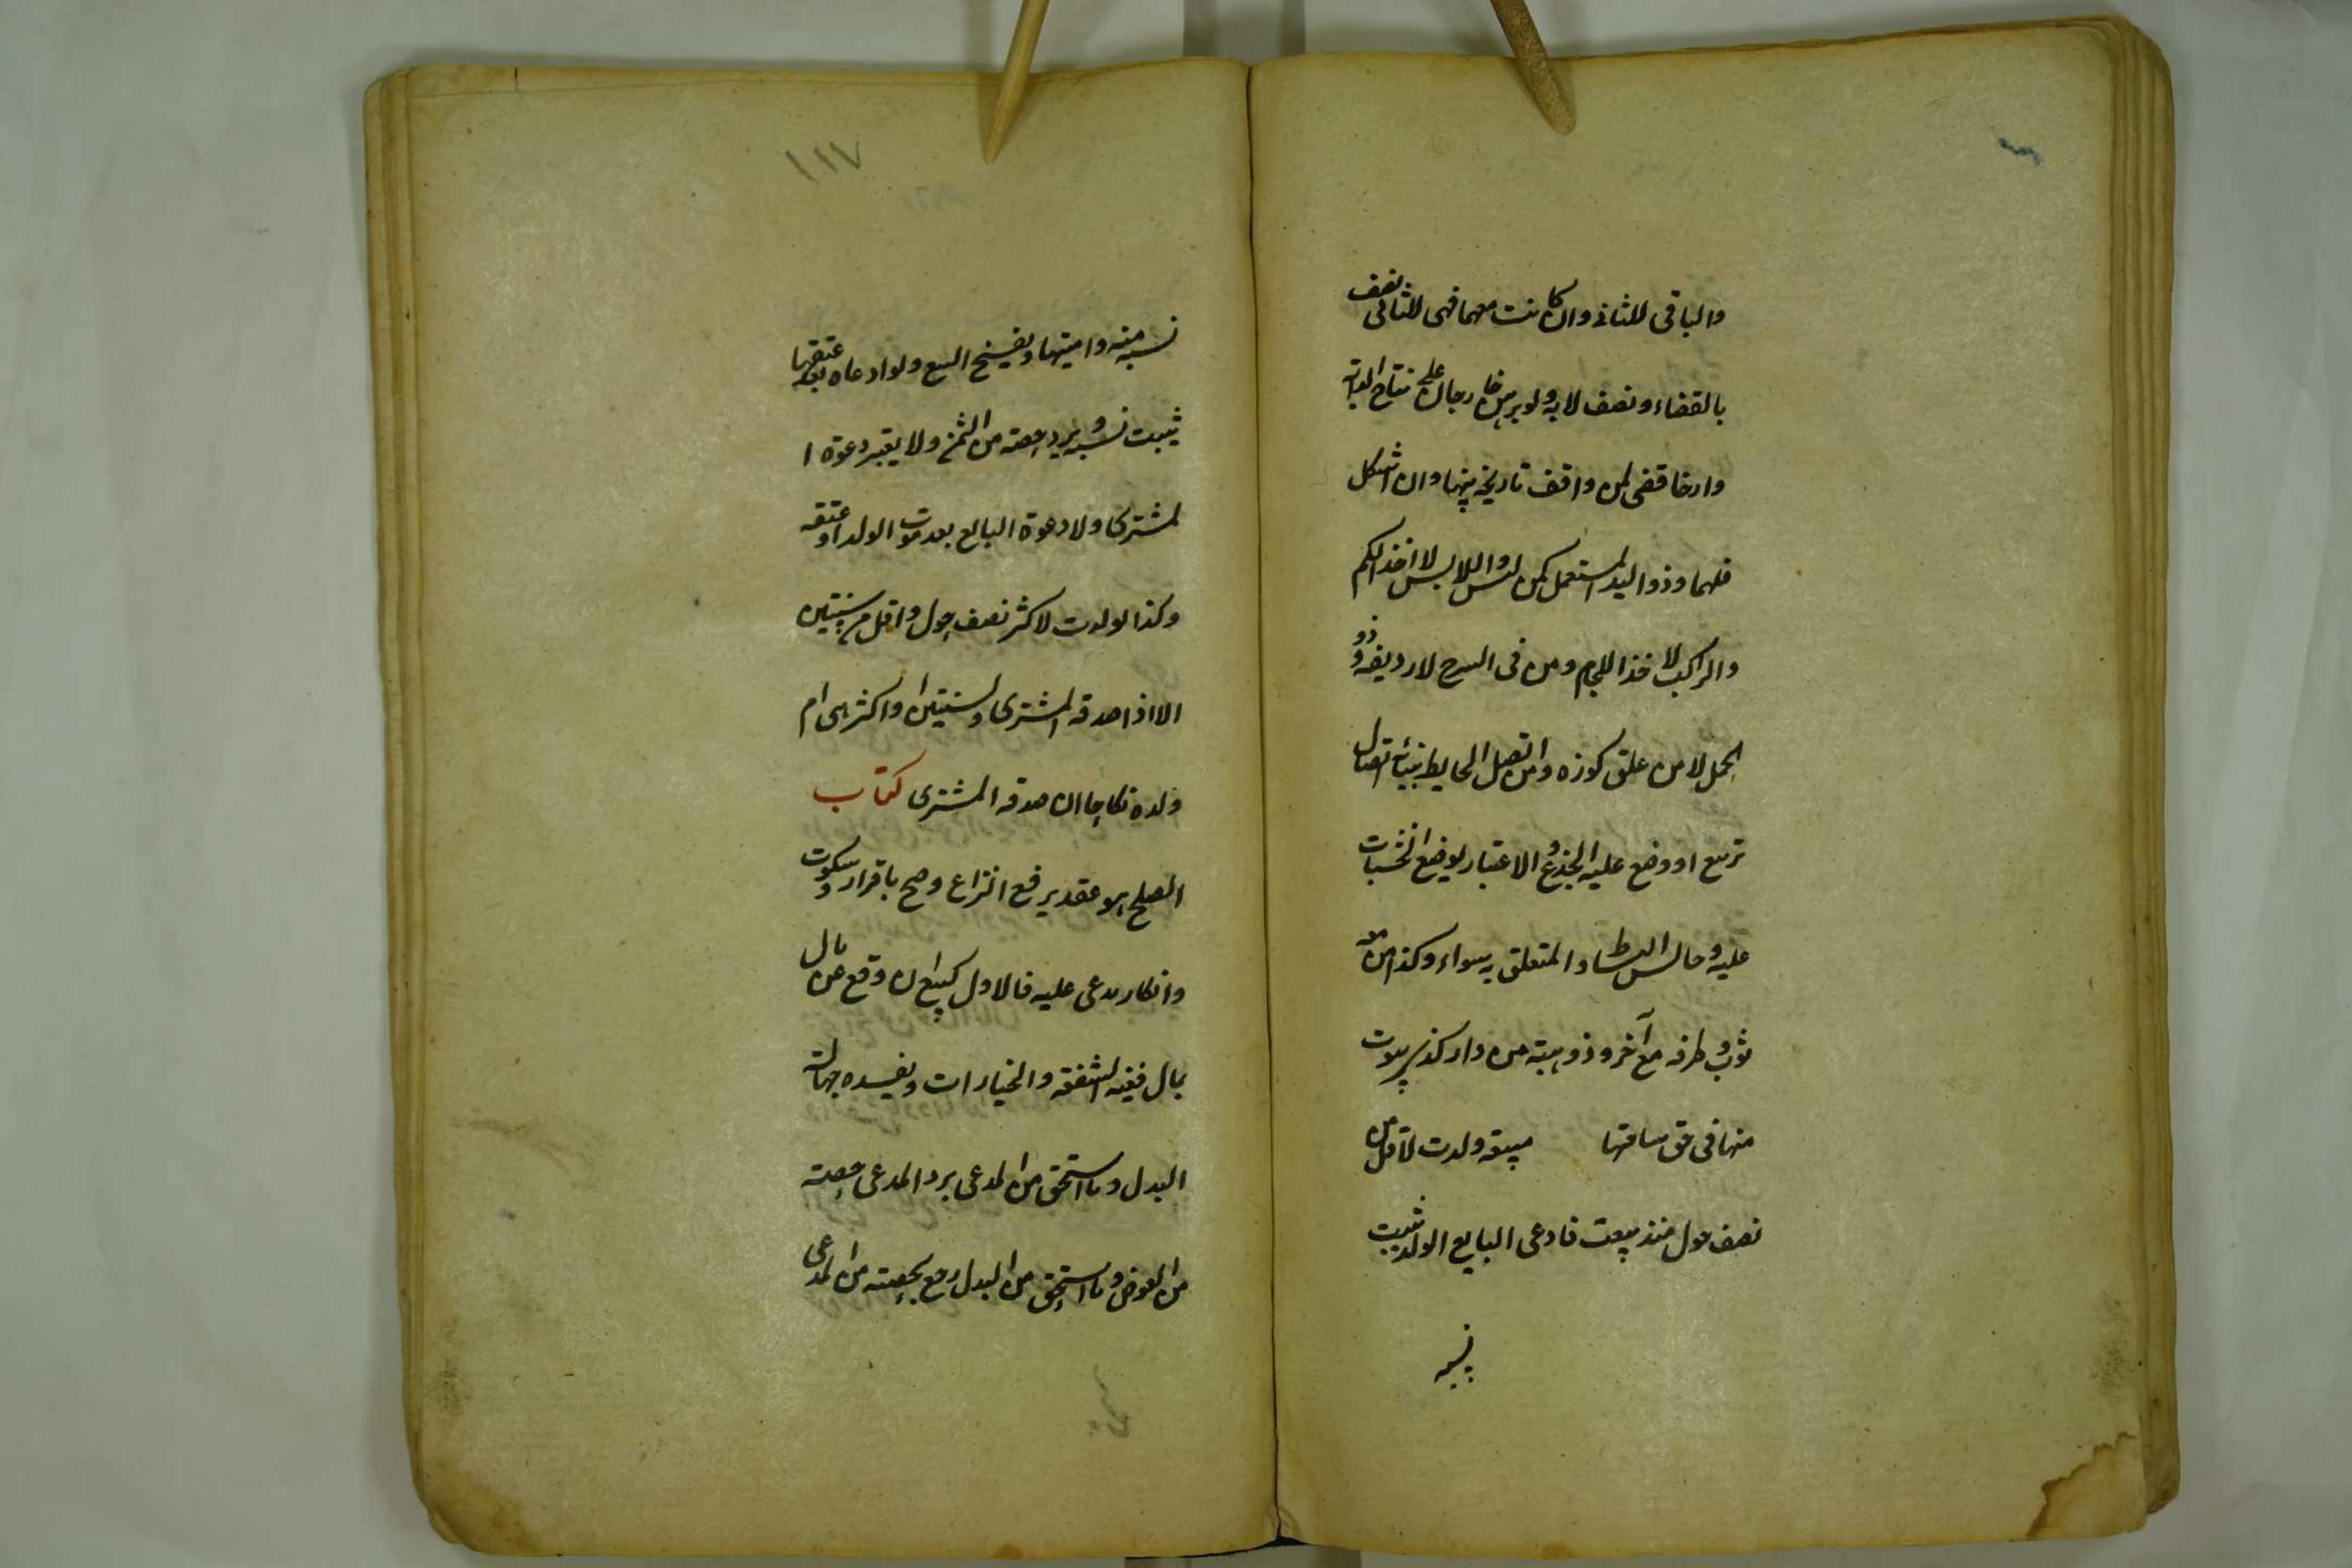 والباقى للثانى وان كانت معهما فهى للثانى نصف
بالقضاء ونصف لا به ولو برهن خارجان على نتاج دابة
وارخا قضى لمن وافق تاريخه سنها وان اشكل
فلهما وذو اليد المستعمل كمن لبن واللابس لا اخذ الكم
والراكب لا اخذ اللجام ومن فى السرج لا رديفه وذو
الحمل لا من علق كوزه ومن اتصل الحايط ببنائه اتصال
تربيع او وضع عليه الجذوع ولا اعتبار لوضع الخشبات
عليه وجالس البساط والمتعلق به سواء وكذا من معه
ثوب وطرفه مع آخر وذو بيت من دار كذى بيوت
منها فى حق ساحتها مبيعة ولدت لاقل من
نصف حول منذ بيعت فادعى البايع الولد ثبت
نسبه
١١٧
نسبه منه واميتها ويفسخ البيع ولو ادعاه بعد عتقها
ثبت نسبه ويرد حصته من الثمن ولا يعتبر دعوة ا
لمشترى ولا دعوة البايع بعد موت الولد او عتقه
وكذا لو ولدت لاكثر نصف حول واقل من سنتين
الا اذا صدقه المشترى ولسنتين او اكثر هى ام
ولده نكاحا ان صدقه المشترى كتاب
الصلح هو عقد يرفع النزاع وصح باقرار وسكوت
وانكار مدعى عليه فالاول كبيع ان وقع عن مال
بمال ففيه الشفعة والخيارات ويفسده جهالة
البدل وما استحق من المدعى يرد المدعى حصته
من العوض وما استحق من البدل رجع بحصته من المدعى